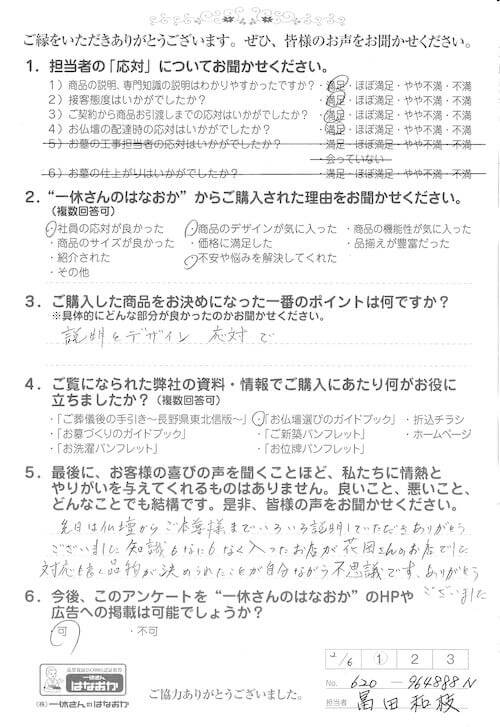 ご縁をいただきありがとうございます。ぜひ、皆様のお声をお聞かせください。
1. 担当者の「応対」についてお聞かせください。
1）商品の説明、専門知識の説明はわかりやすかったですか？・満足・ほぼ満足・やや不満・不満
2）接客態度はいかがでしたか？・満足・ほぼ満足・やや不満・不満
3）ご契約から商品お引渡しまでの応対はいかがでしたか？・満足・ほぼ満足・やや不満・不満
4）お仏壇の配達時の応対はいかがでしたか？・満足・ほぼ満足・やや不満・不満
5）お墓の工事担当者の応対はいかがでしたか？・満足・ほぼ満足・やや不満・不満
・会っていない
6）お墓の仕上がりはいかがでしたか？・満足・ほぼ満足・やや不満・不満
2. “一休さんのはなおか”からご購入された理由をお聞かせください。
（複数回答可）
・社員の応対が良かった ・商品のデザインが気に入った ・商品の機能性が気に入った
・商品のサイズが良かった ・価格に満足した ・品揃えが豊富だった
・紹介された ・不安や悩みを解決してくれた
・その他
3. ご購入した商品をお決めになった一番のポイントは何ですか？
※具体的にどんな部分が良かったのかお聞かせください。
説明とデザイン 応対で
4. ご覧になられた弊社の資料・情報でご購入にあたり何がお役に
立ちましたか？（複数回答可）
・「ご葬儀後の手引き～長野県東北信版～」 ・「お仏壇選びのガイドブック」 ・折込チラシ
・「お墓づくりのガイドブック」 ・「ご新築パンフレット」 ・ホームページ
・「お洗濯パンフレット」 ・「お位牌パンフレット」
5. 最後に、お客様の喜びの声を聞くことほど、私たちに情熱と
やりがいを与えてくれるものはありません。良いこと、悪いこと、
どんなことでも結構です。是非、皆様の声をお聞かせください。
先日は仏壇からご本尊様までいろいろ説明していただきありがとう
ございました 知識もなにもなく入ったお店が花岡さんのお店でした
対応も良く品物が決められたことが自分ながら不思議です、ありがとう
ございました
6. 今後、このアンケートを“一休さんのはなおか”のHPや
広告への掲載は可能でしょうか？
・可 ・不可
一休さん
はなおか
（株）一休さんのはなおか
ご協力ありがとうございました。
2/6 1 2 3
No. 620 - 964888 N
担当者 冨田和枝